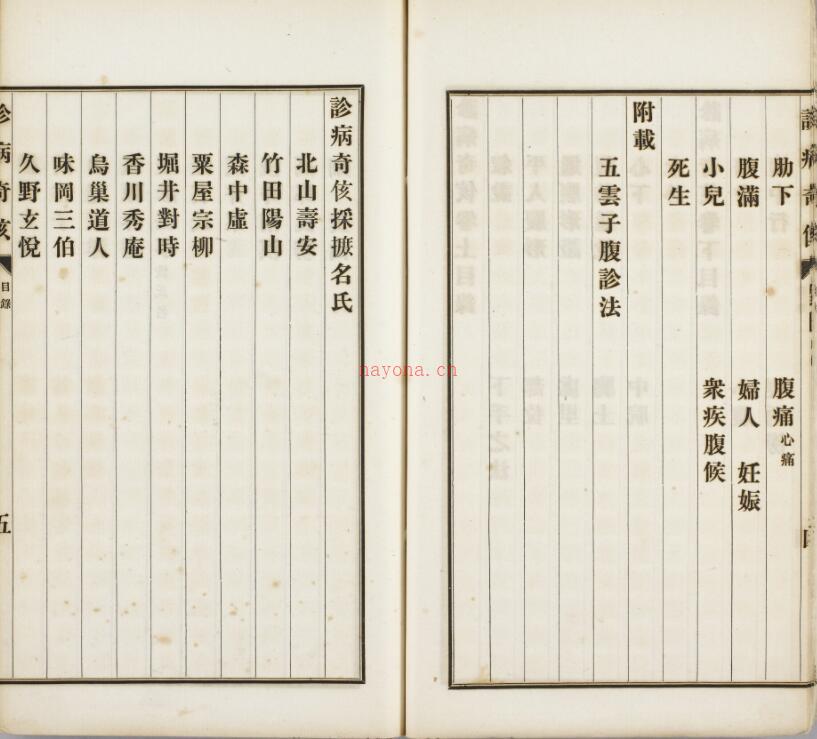 肋下 腹痛 心痛
腹滿 婦人 妊娠
小兒 衆疾腹候
死生
附載
五雲子腹診法
診病奇侅採摭名氏
北山壽安
竹田陽山
森中虛
粟屋宗柳
堀井對時
香川秀庵
烏巢道人
味岡三伯
久野玄悅
診病奇侅 目錄 五
nayona.cn